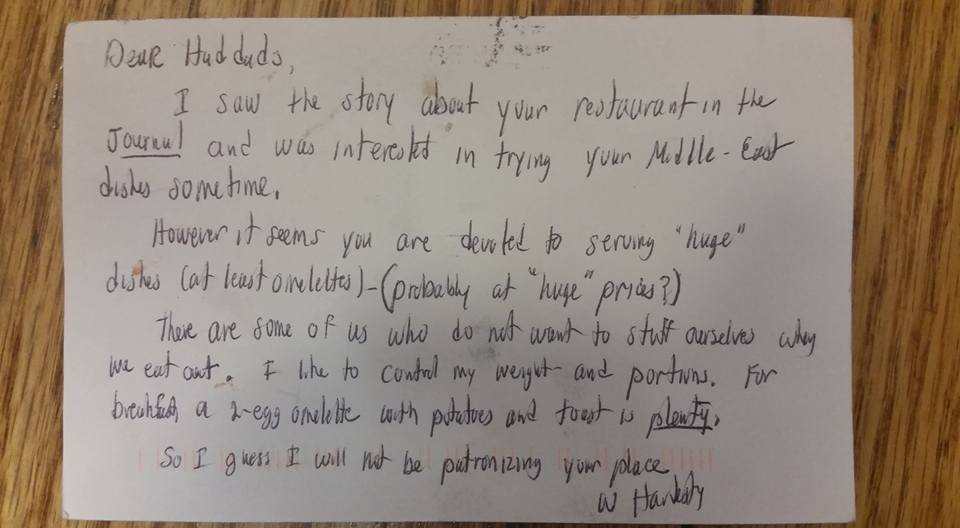 Dear Haddads,
I saw the story about your restaurant in the
Journal and was interested in trying your Middle-East
dishes sometime.
However it seems you are devoted to serving "huge"
dishes (at least omelettes)-(probably at "huge" prices?)
There are some of us who do not want to stuff ourselves when
we eat out. I like to control my weight and portions. For
breakfast, a 2-egg omelette with potatoes and toast is plenty.
So I guess I will not be patronizing your place
W